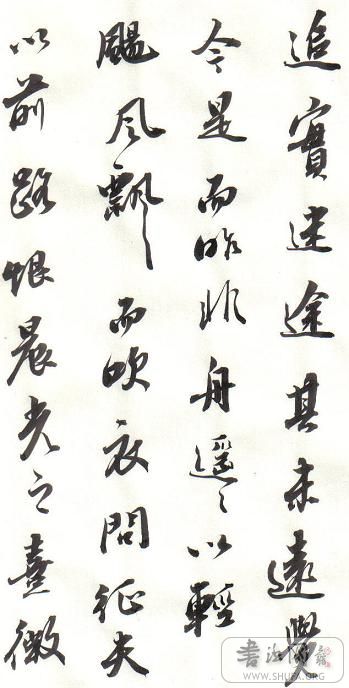 追實迷途其未遠覺
今是而昨非舟遥〻以輕
颺風飄〻而吹衣問征夫
以前路恨晨光之熹微
WWW.SHUFA.ORG